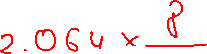 2.064 × 8